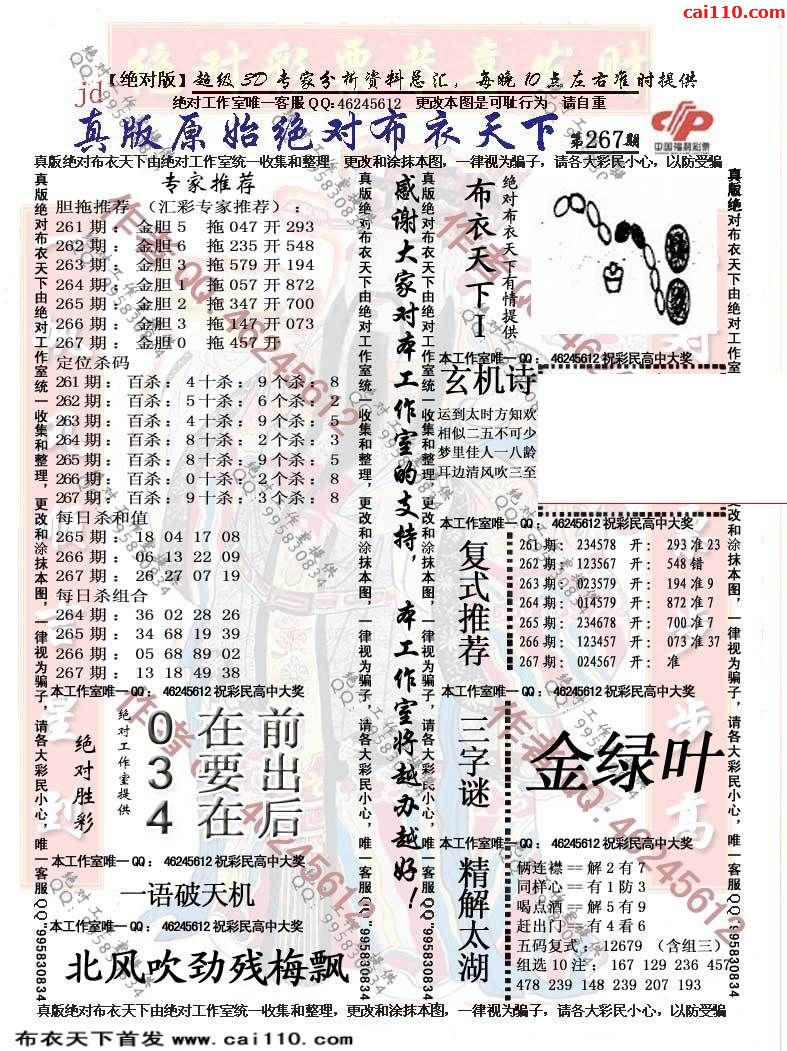 cai110.com
【绝对版】超级3D专家分析资料总汇，每晚10点左右准时提供
jd
绝对工作室唯一客服QQ:46245612 更改本图是可耻行为 请自重
真版原始绝对布衣天下 第267期
中国福利彩票
真版绝对布衣天下由绝对工作室统一收集和整理，更改和涂抹本图，一律视为骗子，请各大彩民小心，以防受骗
真版绝对布衣天下由绝对工作室统一收集和整理，更改和涂抹本图，一律视为骗子，请各大彩民小心，唯一客服QQ995830834
专家推荐
胆拖推荐 （汇彩专家推荐）：
261期：金胆5 拖047开293
262期：金胆6 拖235开548
263期：金胆3 拖579开194
264期：金胆1 拖057开872
265期：金胆2 拖347开700
266期：金胆3 拖147开073
267期：金胆0 拖457开
定位杀码
261期：百杀：4十杀：9个杀：8
262期：百杀：5十杀：6个杀：2
263期：百杀：4十杀：9个杀：5
264期：百杀：8十杀：2个杀：3
265期：百杀：8十杀：9个杀：5
266期：百杀：0十杀：2个杀：8
267期：百杀：9十杀：3个杀：8
每日杀和值
265期：18 04 17 08
266期：06 13 22 09
267期：26 27 07 19
每日杀组合
264期：36 02 28 26
265期：34 68 19 39
266期：05 68 89 02
267期：13 18 49 38
本工作室唯一QQ：46245612祝彩民高中大奖
绝对胜彩
绝对工作室提供
0在前
3要出
4在后
本工作室唯一QQ：46245612祝彩民高中大奖
一语破天机
本工作室唯一QQ：46245612祝彩民高中大奖
北风吹劲残梅飘
真版绝对布衣天下由绝对工作室统一收集和整理，更改和涂抹本图，一律视为骗子，请各大彩民小心，唯一客服QQ995830834
感谢大家对本工作室的支持，本工作室将越办越好！
真版绝对布衣天下由绝对工作室统一收集和整理，更改和涂抹本图，一律视为骗子，请各大彩民小心，唯一客服QQ995830834
布衣天下I
绝对布衣天下有情提供
本工作室唯一QQ：46245612祝彩民高中大奖
玄机诗
运到太时方知欢
相似二五不可少
梦里佳人一八龄
耳边清风吹三至
本工作室唯一QQ：46245612祝彩民高中大奖
复式推荐
261期：234578 开：293准23
262期：123567 开：548错
263期：023579 开：194准9
264期：014579 开：872准7
265期：234678 开：700准7
266期：123457 开：073准37
267期：024567 开：准
本工作室唯一QQ：46245612祝彩民高中大奖
三字谜
金绿叶
本工作室唯一QQ：46245612祝彩民高中大奖
精解太湖
俩连襟==解2有7
同样心==有1防3
喝点酒==解5有9
赶出门==有4看6
五码复式：12679（含组三）
组选10注：167 129 236 457
478 239 148 239 207 193
真版绝对布衣天下由绝对工作室统一收集和整理，更改和涂抹本图，一律视为骗子，请各大彩民小心，唯一客服QQ995830834
真版绝对布衣天下由绝对工作室统一收集和整理，更改和涂抹本图，一律视为骗子，请各大彩民小心，以防受骗
布衣天下首发 www.cai110.com